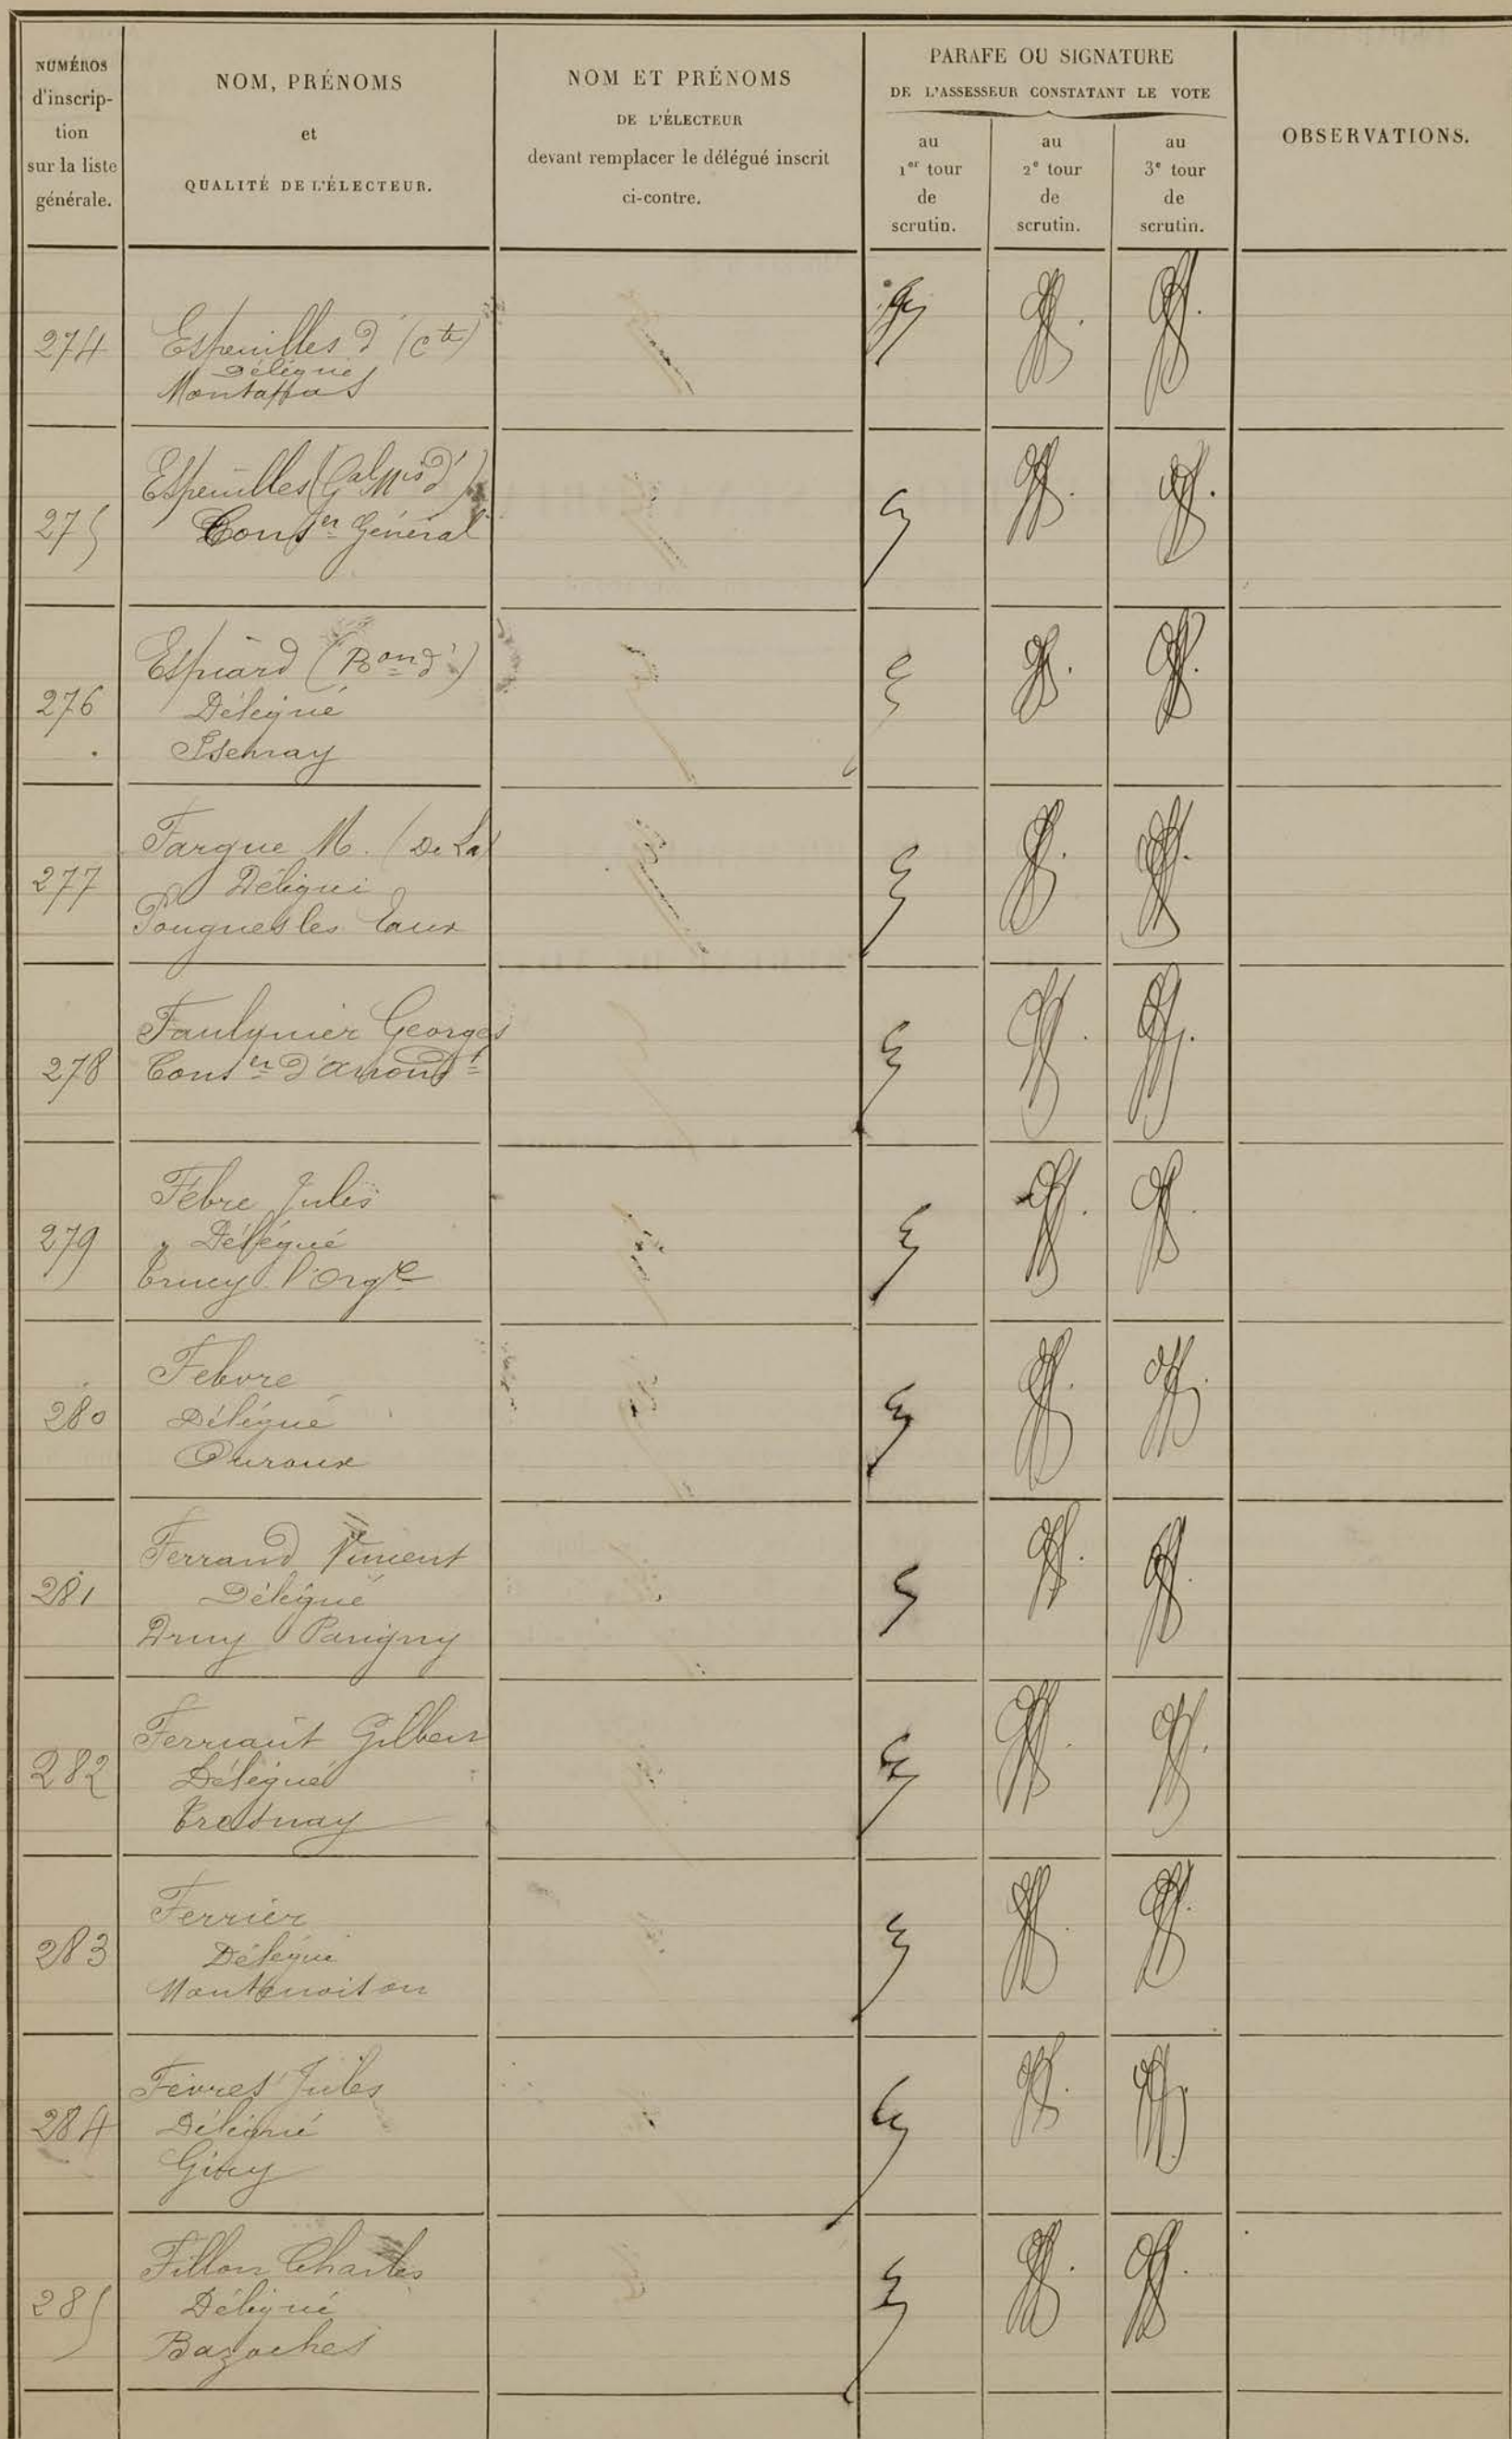 NUMÉROS
d'inscrip-
tion
sur la liste
générale.
NOM, PRÉNOMS
et
QUALITÉ DE L'ÉLECTEUR.
NOM ET PRÉNOMS
DE L'ÉLECTEUR
devant remplacer le délégué inscrit
ci-contre.
PARAFE OU SIGNATURE
DE L'ASSESSEUR CONSTATANT LE VOTE
au
1er tour
de
scrutin.
au
2e tour
de
scrutin.
au
3e tour
de
scrutin.
OBSERVATIONS.
274
Espeuilles d' (Cte)
Délégué
Montapas
275
Espeuilles (Gal Mis d')
Conser Général
276
Espiard (Bon d')
Délégué
Isenay
277
Fargue M. (De La
Délégué
Pougues les Eaux
278
Faulquier Georges
Conser d'arrondt
279
Febre Jules
Délégué
Crucy l'Orgx
280
Febvre
Délégué
Ouroux
281
Ferrand Vincent
Délégué
Druy Parigny
282
Ferriaut Gilbert
Délégué
Tresnay
283
Ferrier
Délégué
Montenoison
284
Fèvres Jules
Délégué
Giry
285
Fillon Charles
Délégué
Bazoches